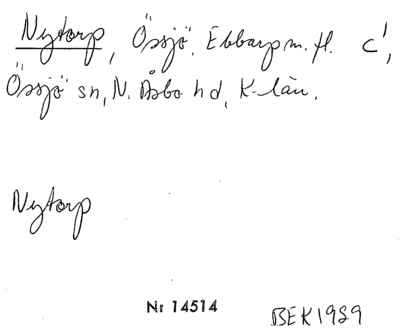 Nytorp, Össjö, Ebbarp m. fl. C¹,
Össjö sn, N. Åsbo hd, K-län.
Nytorp
Nr 14514
BEK 1989